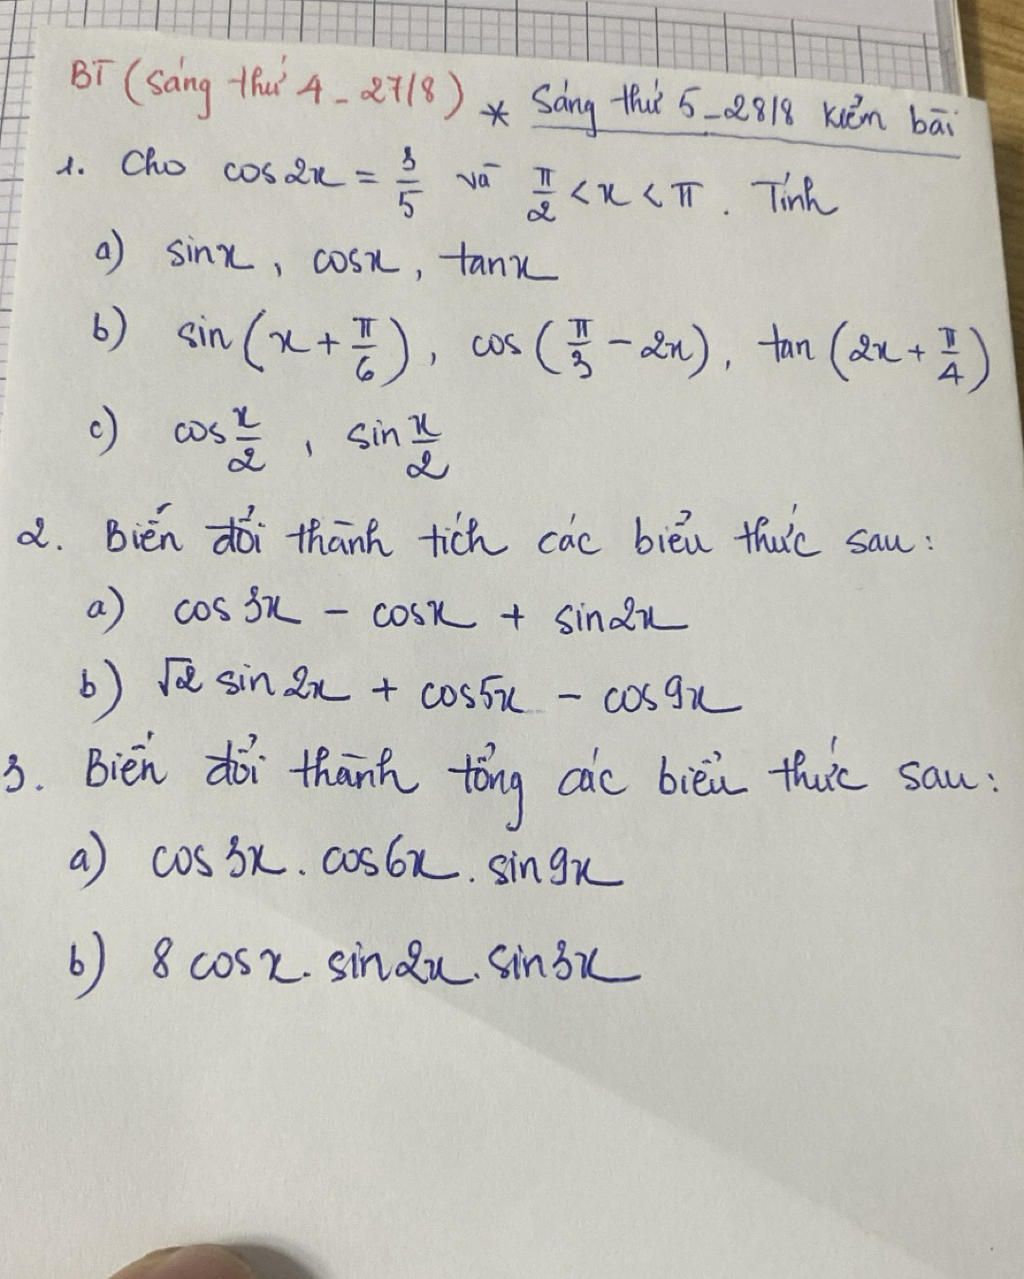 BT (Sáng thứ 4 - 27/8) * Sáng thứ 5 - 28/8 kiểm bài
1. Cho cos2x = 3/5 và π/2 < x < π. Tính
a) sinx, cosx, tanx
b) sin(x + π/6), cos(π/3 - 2x), tan(2x + π/4)
c) cos x/2, sin x/2
2. Biến đổi thành tích các biểu thức sau:
a) cos3x - cosx + sin2x
b) √2 sin2x + cos5x - cos9x
3. Biến đổi thành tổng các biểu thức sau:
a) cos3x. cos6x. sin9x
b) 8cosx. sin2x. sin3x